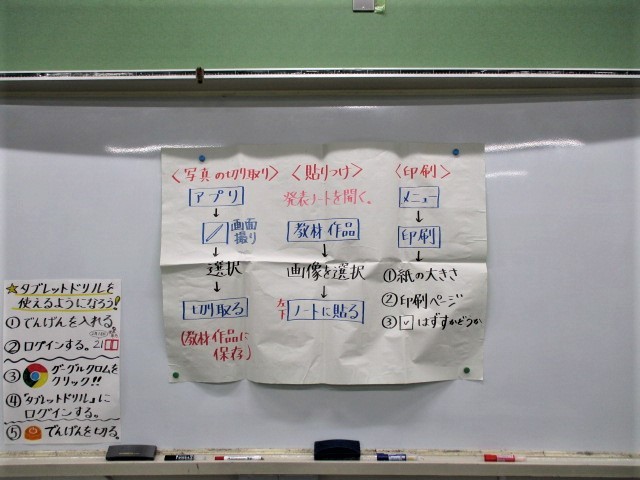 〈写真の切り取り〉
アプリ
↓
画面
撮り
↓
選択
↓
切り取る
(教材作品に
保存)
〈貼りつけ〉
発表ノートを開く。
教材作品
↓
画像を選択
↓
ノートに貼る
〈印刷〉
メニュー
↓
印刷
↓
①紙の大きさ
②印刷ページ
③☑はずすかどうか
☆タブレットドリルを
使えるようになろう!
①でんげんを入れる
②ログインする。
③グーグルクロムを
クリック!!
④「タブレットドリル」に
ログインする。
⑤でんげんを切る。